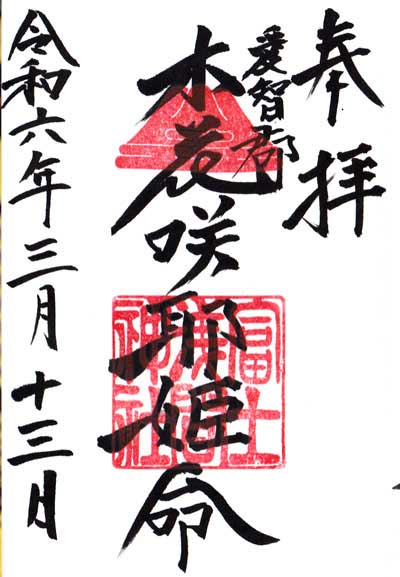 奉拝
愛智郡
木花咲耶姫命
富士
浅間
神社
令和六年三月十三日